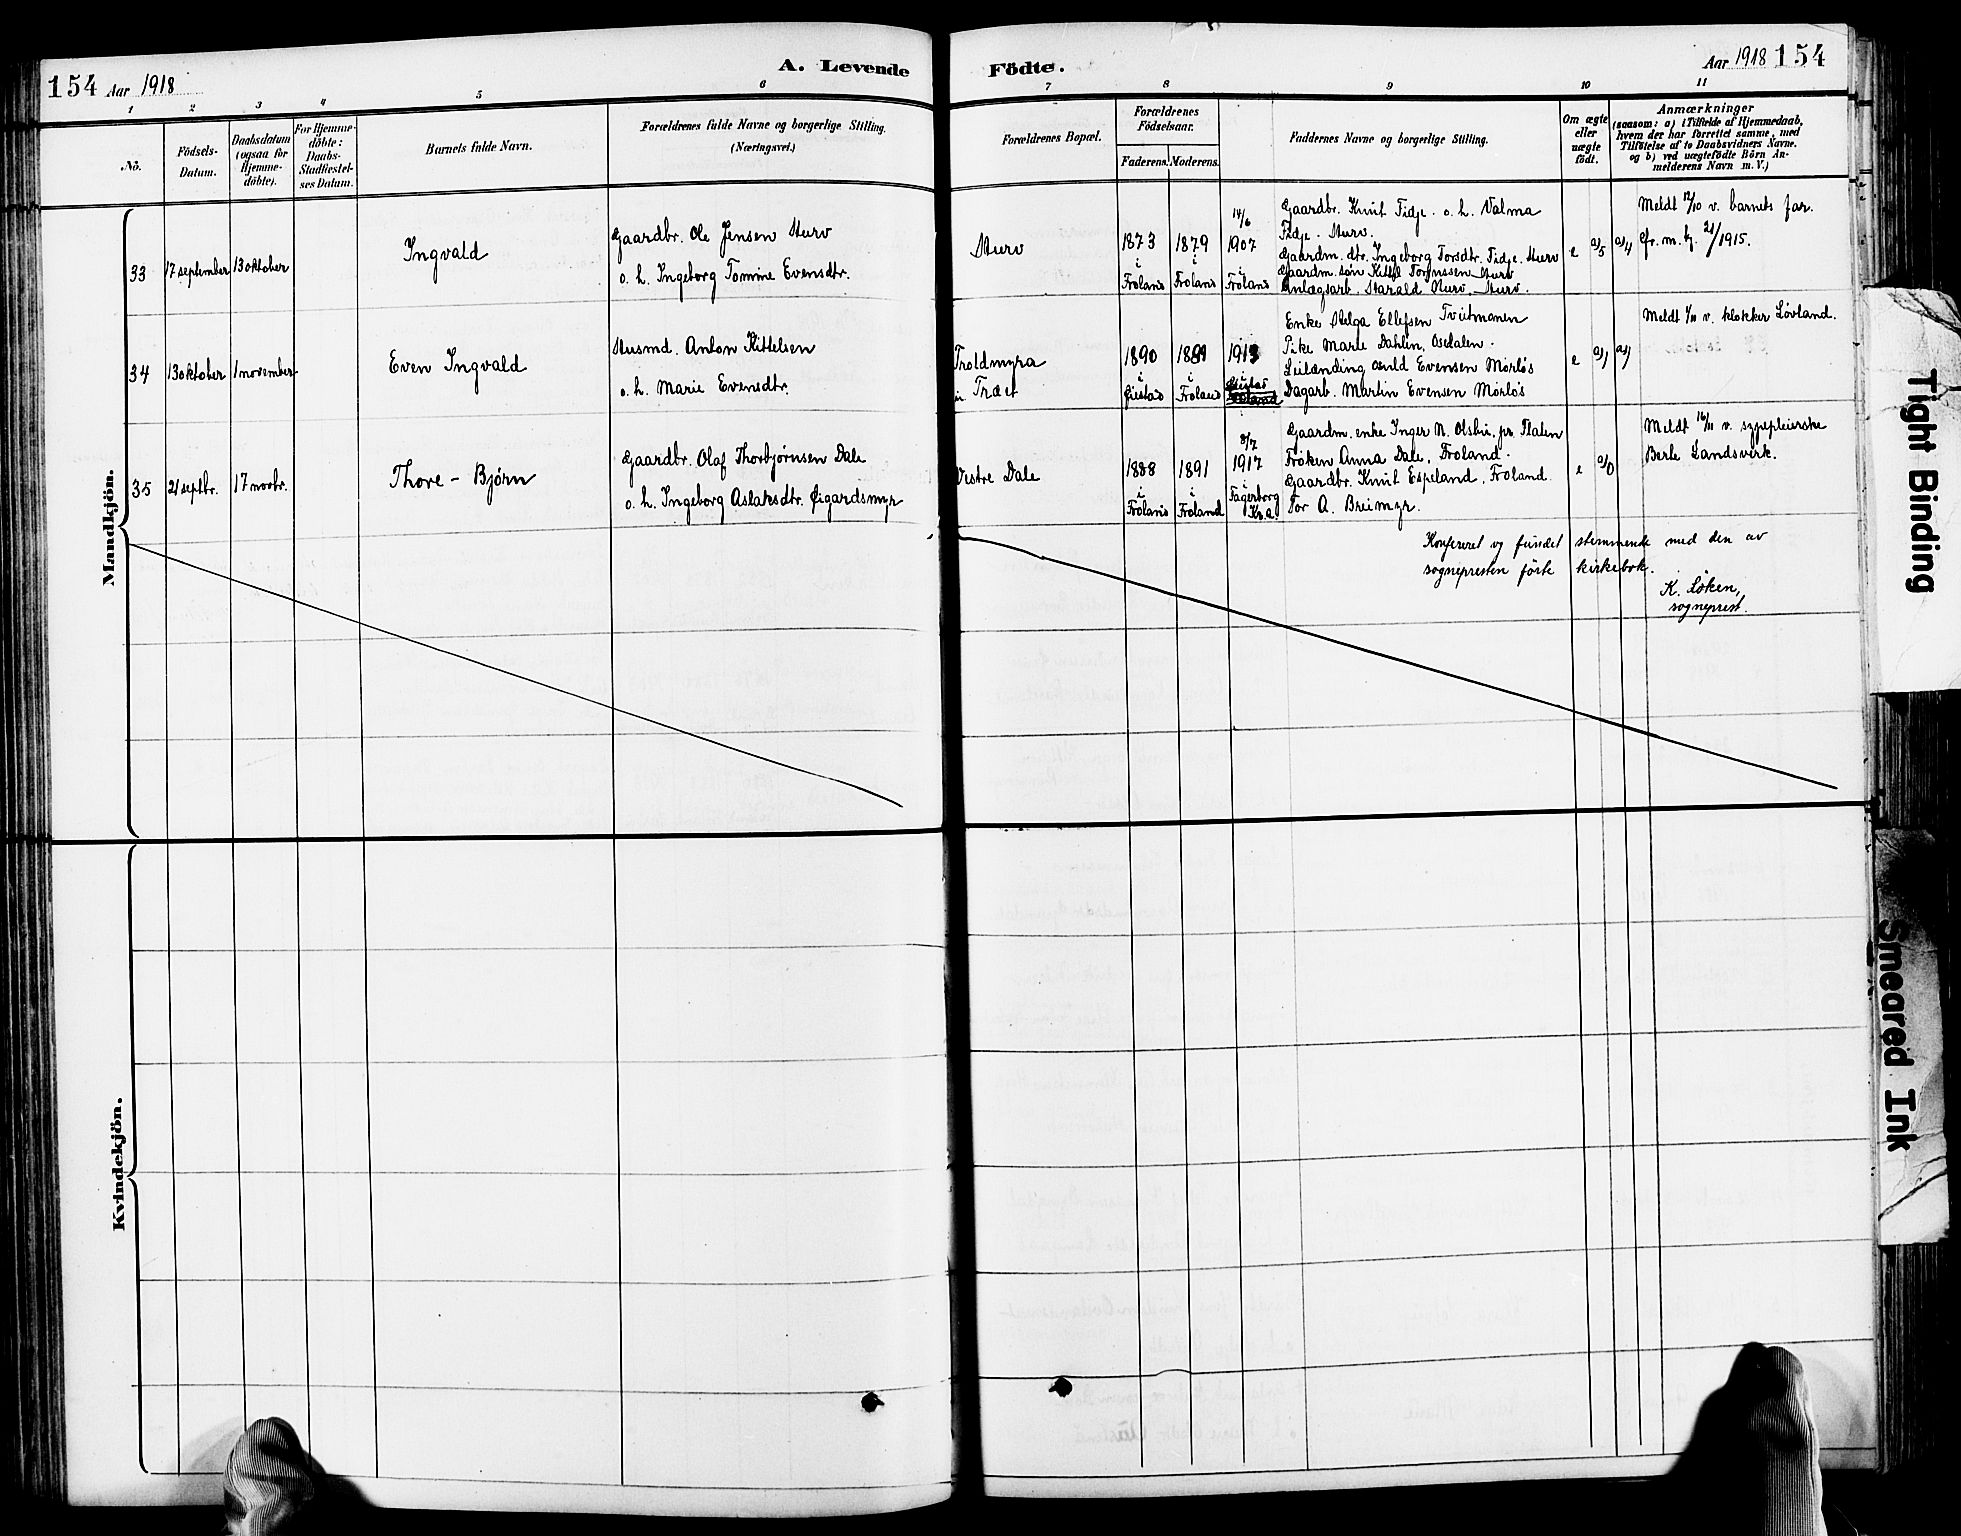 154 Aar 1918
A. Levende
Födte.
Aar 1918 154
1 2 3 4 5 6 7 8 9 10 11
No.
Födsels-
Datum.
Daabsdatum
(ogsaa for
Hjemme-
döbte).
For Hjemme-
döbte:
Daabs-
Stadfæstel-
ses Datum.
Barnets fulde Navn.
Forældrenes fulde Navne og borgerlige Stilling.
(Næringsvei.)
Forældrenes Bopæl.
Forældrenes
Födselsaar.
Faderens. Moderens.
Faddernes Navne og borgerlige Stilling.
Om ægte
eller
uægte
født.
Anmærkninger
(saasom: a) i Tilfælde af Hjemmedaab,
hvem der har forrettet samme, med
Tilföielse af to Daabsvidners Navne.
og b) ved uægtefödte Börn An-
melderens Navn m. V.)
Mandkjön.
33
17 september
13 oktober
Ingvald
Gaardbr. Ole Jensen Hurv
o. h. Ingeborg Tomine Evensdtr.
Hurv
1873
i
Froland
1879
i
Froland
14/6
1907
i
Froland
Gaardbr. Knut Tidje. o. h. Valma
Tidje. Hurv.
Gaardm. dtr. Ingeborg Torsdtr. Tidje. Hurv
Gaardm. søn Kittil Hurv
Anlægsarb. Harald Hurv, Hurv.
e
a/5
a/4
Meldt 12/10 v. barnets far.
cfr. m. bj. 21/1915.
34
13 oktober
1 november
Even Ingvald
Husmd. Anton Kittelsen
o. h. Marie Evensdtr.
Troldmyra
Træet
1890
i
Øiestad
i
Froland
i
Enke Helga Ellefsen
Pike Marie Dahlin, Osedalen.
Leilænding Evensen Mørløs
Dagarb. Martin Evensen Mørløs
e
a/1
Meldt 1/11 v. klokker Løvland.
35
21 septbr.
17 novbr.
Thore - Bjørn
Gaardbr. Olaf Thorbjørnsen Dale
o. h. Ingeborg Aslaksdtr. Øigardsmyr
Vestre Dale
1888
i
Froland
1891
i
Froland
8/7
1917
i
Fagerborg
Kr.a.
Gaardm. enke Inger N. Olsbu, pr. Flaten
Frøken Anna Dale, Froland.
Gaardbr. Knut Espeland, Froland.
Tor A. Breimyr.
e
a/0
Meldt 16/11 v. sygepleierske
Berte Landsverk.
Konfereret og fundet stemmende med den av
sognepresten førte kirkebok.
K. Løken,
sogneprest.
Kvindekjön.
Tight Binding
Smeared Ink